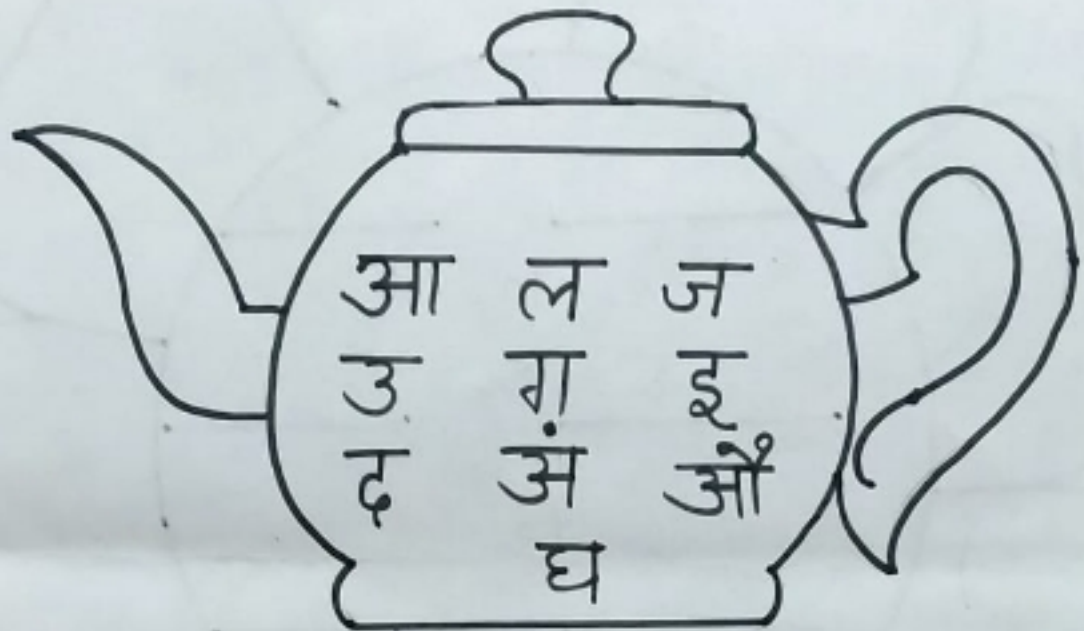 आ ल ज
उ ग इ
द अं औ
घ